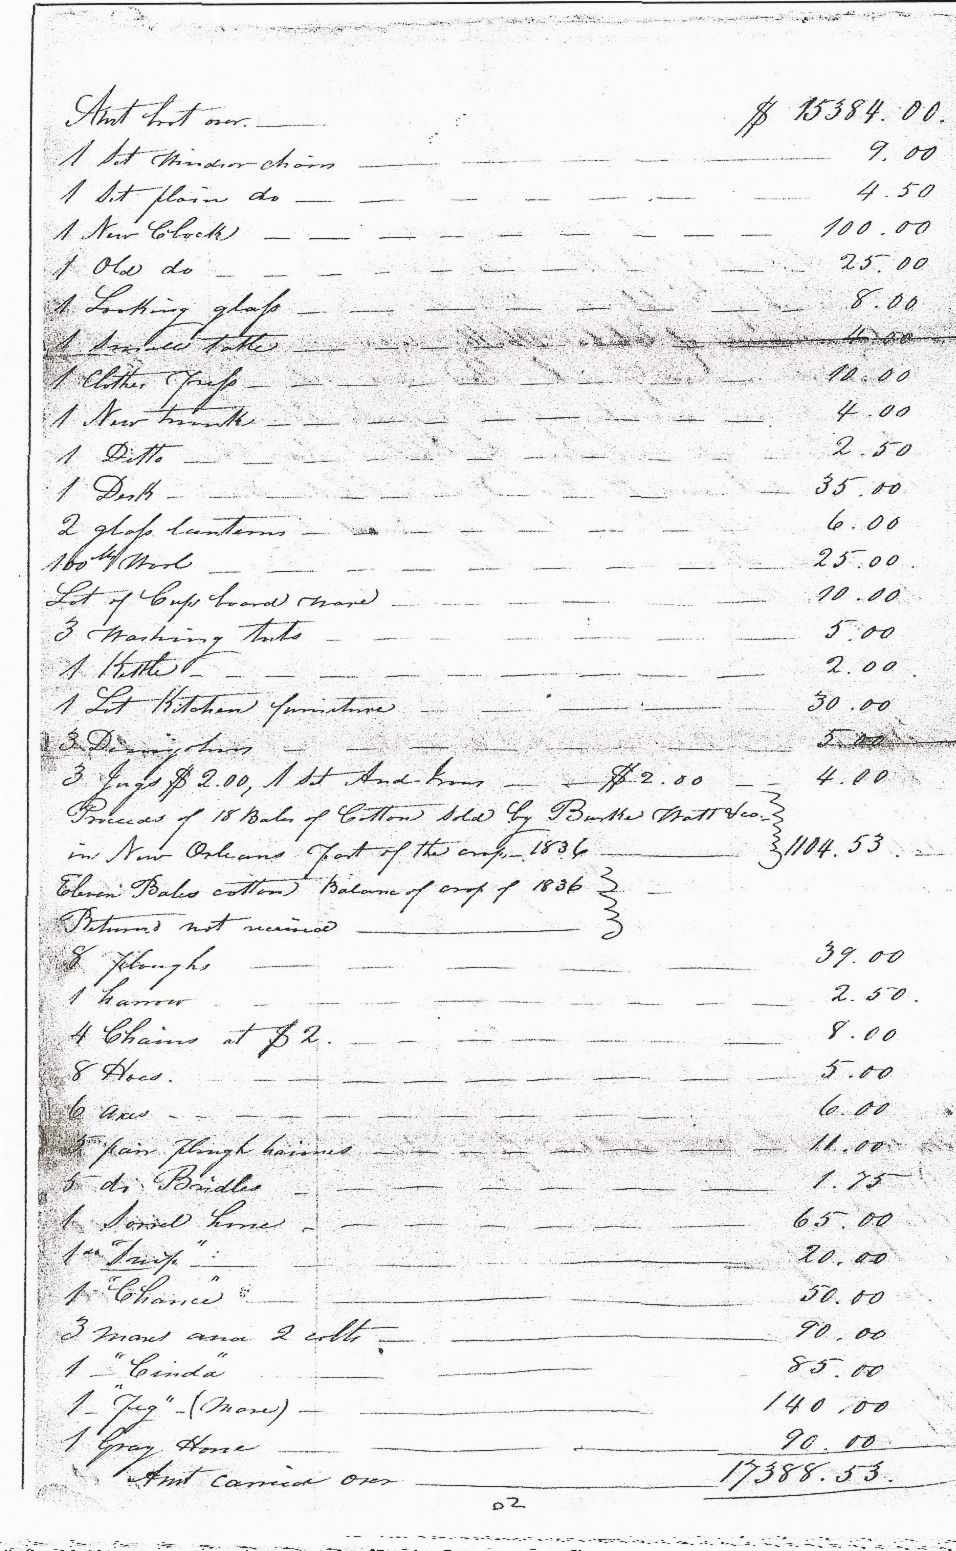 Amt brot over. $ 15384.00.
1 Set Windsor chairs 9.00
1 Set plain do 4.50
1 New Clock 100.00
1 Old do 25.00
1 Looking glass 8.00
1 Small table 4.00
1 Clothes Press 10.00
1 New trunk 4.00
1 Ditto 2.50
1 Desk 35.00
2 glass lanterns 6.00
100 lb Wool 25.00
Lot of Cups board ware 10.00
3 Washing tubs 5.00
1 Kettle 2.00
1 Lot Kitchen furniture 30.00
3 Demijohns 5.00
3 Jugs $2.00, 1 Set And-Irons $2.00 4.00
Proceeds of 18 Bales of Cotton sold by Burke Watt &co.
in New Orleans part of the crop 1836 1104.53
Eleven Bales cotton Balance of crop of 1836
Returns not received
8 ploughs 39.00
1 harrow 2.50.
4 Chains at $2. 8.00
8 Hoes. 5.00
6 axes 6.00
5 pair plough haimes 11.00
5 do Bridles 1.75
1 Sorrel horse 65.00
1 do "Snip" 20.00
1 "Chance" 50.00
3 mares and 2 colts 90.00
1 "Cinda" 85.00
1 - (Mare) 140.00
1 Gray Horse 90.00
Amt carried over 17388.53.
02